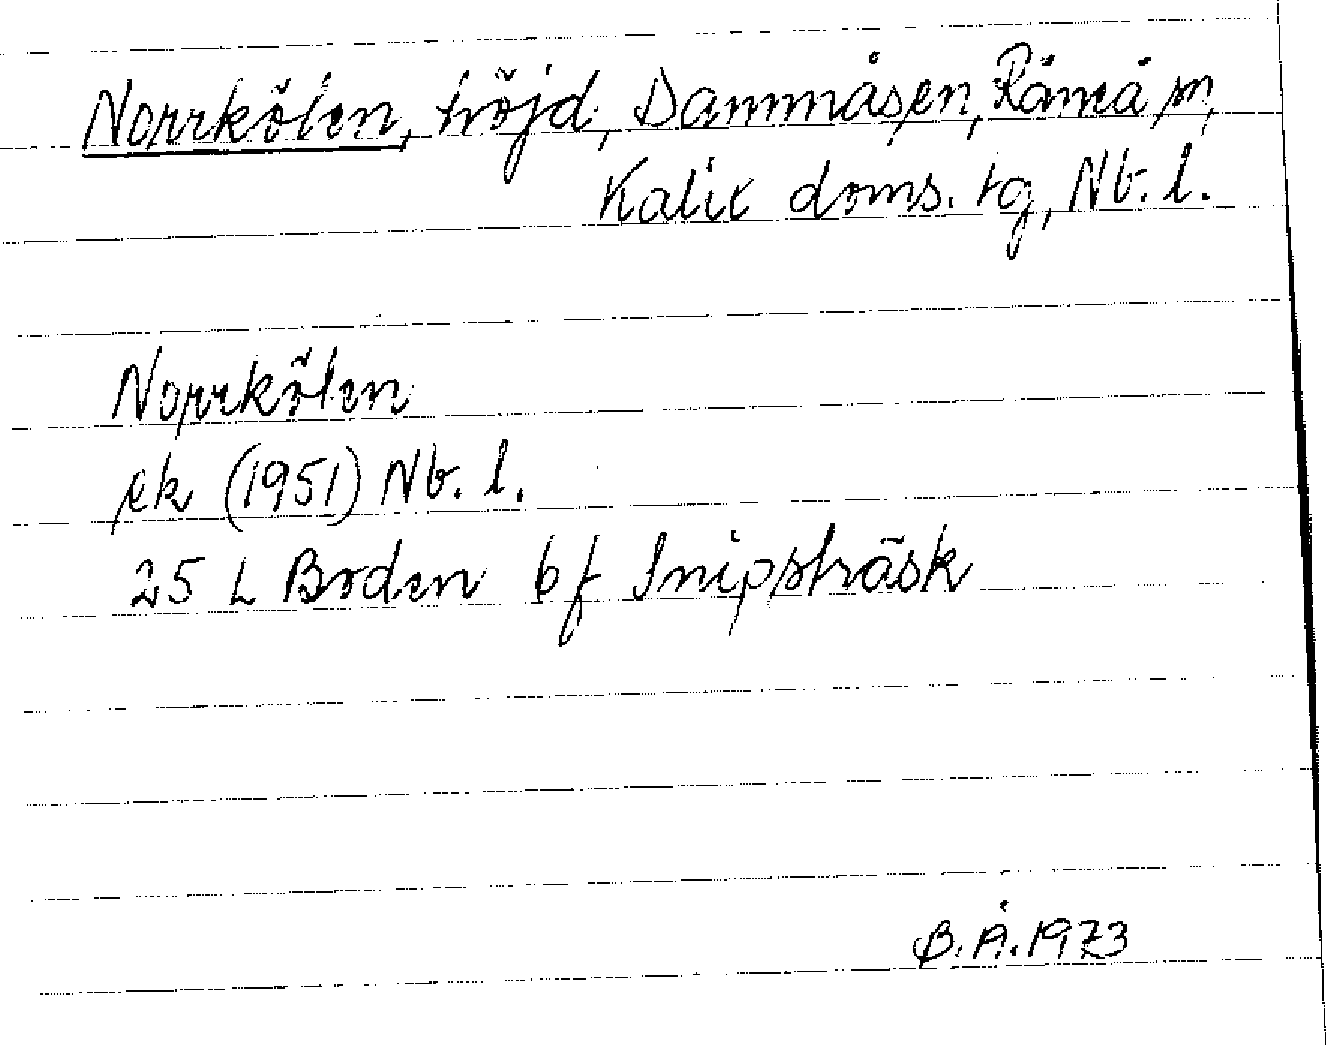 Norrkölen, höjd, Dammåsen, Råneå sn,
Kalix doms. tg, Nb. l.
Norrkölen
ek (1951) Nb. l.
25 L Boden bf Snipsträsk
B.Å. 1973